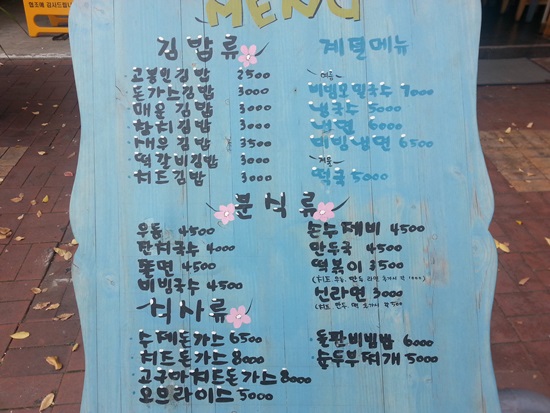 MENU
김밥류
고봉민김밥 2500
돈가스김밥 3000
매운김밥 3000
참치김밥 3000
새우김밥 3500
떡갈비김밥 3000
치즈김밥 3000
계절메뉴
-여름-
비빔모밀국수 7000
냉국수 5000
냉면 6000
비빔냉면 6500
-겨울-
떡국 5000
분식류
우동 4500
잔치국수 4000
쫄면 4500
비빔국수 4500
손수제비 4500
만두국 4500
떡볶이 3500
신라면 3000
식사류
수제돈가스 6500
치즈돈가스 8000
고구마치즈돈가스 8000
오므라이스 5000
돌판비빔밥 6000
순두부찌개 5000